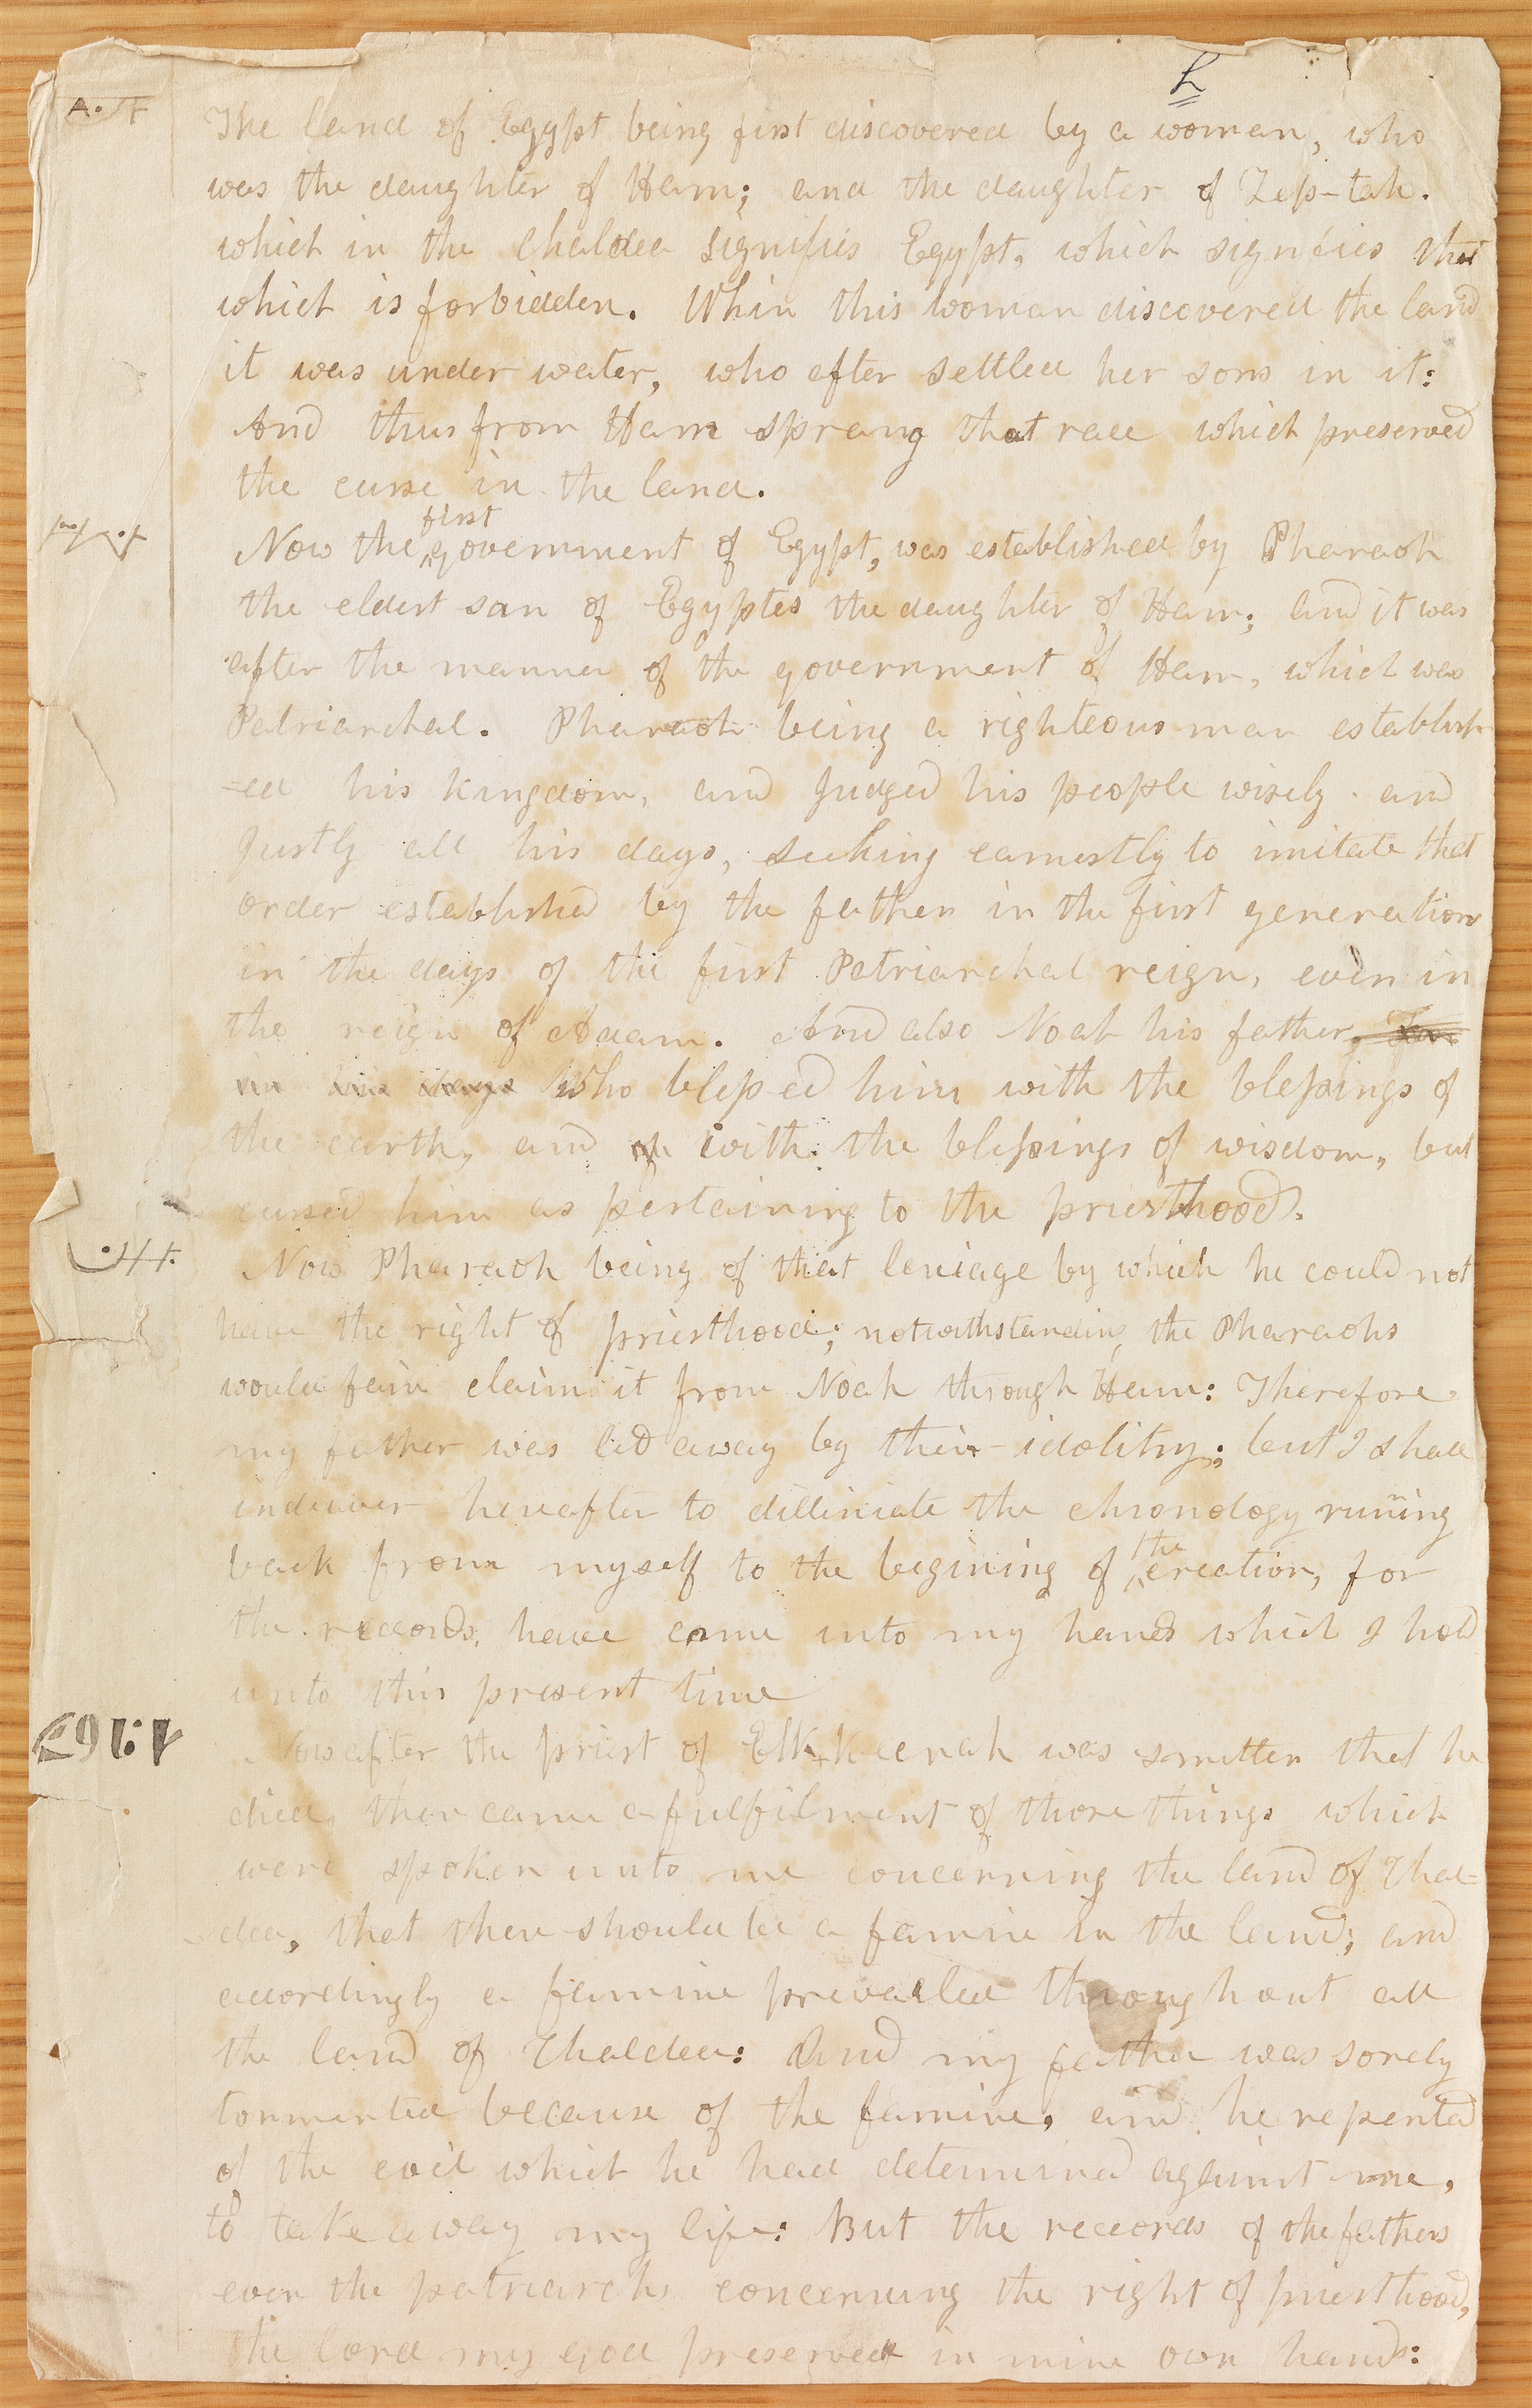 The land of Egypt being first discovered by a woman, who
was the daughter of Ham; and the daughter of Zep-tah.
which in the Chaldea signifies Egypt, which signifies that
which is forbidden. When this woman discovered the land
it was under water, who after settled her sons in it:
And thus from Ham sprang that race which preserved
the curse in the land.
Now the first government of Egypt, was established by Pharaoh
the eldest son of Egyptes the daughter of Ham; and it was
after the manner of the government of Ham, which was
Patriarchal. Pharaoh being a righteous man establish
=ed his kingdom, and Judged his people wisely and
Justly all his days, seeking earnestly to imitate that
order established by the fathers in the first generation
in the days of the first Patriarchal reign, even in
the reign of Adam. And also Noah his father, For
in his days Who blessed him with the blessings of
the earth, and of with the blessings of wisdom, but
cursed him as pertaining to the priesthood.
Now Pharaoh being of that leniage by which he could not
have the right of priesthood; notwithstanding the Pharaohs
would fain claim it from Noah through Ham: Therefore
my father was led away by their idolitry; but I shall
indeaver hereafter to dilliniate the chronology runing
back from myself to the begining of the creation, for
the records have come into my hands which I hold
unto this present time
Now after the priest of Elk-keenah was smitten that he
died, there came a fulfilment of those things which
were spoken unto me concerning the land of Chal=
dea, that there should be a famine in the land; and
accordingly a famine prevailed throughout all
the land of Chaldea: And my father was sorely
tormented because of the famine, and he repented
of the evil which he had determined against me,
to take away my life: But the records of the fathers
even the patriarchs concerning the right of priesthood,
the lord my god preserved in mine own hands: